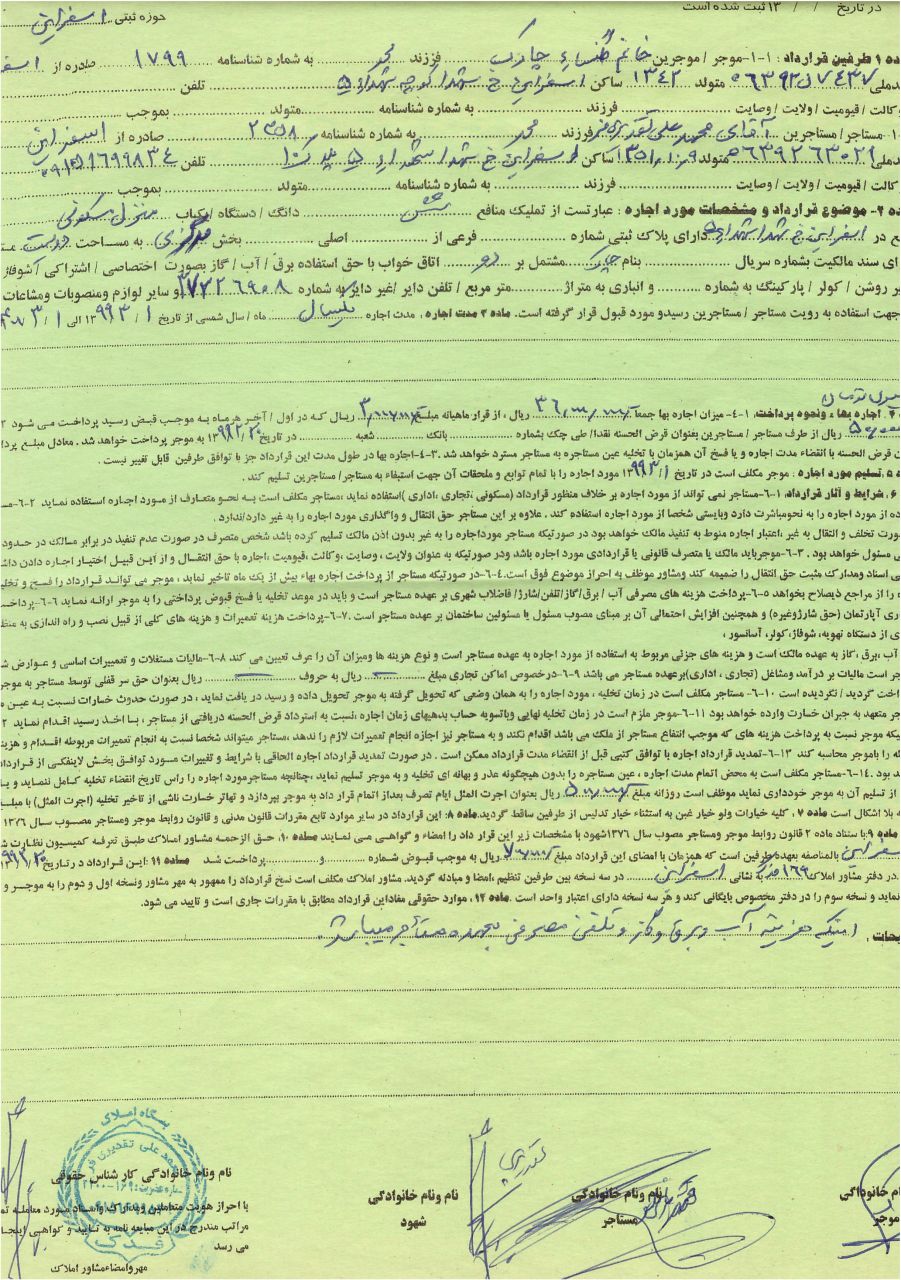 در تاریخ / / ۱۳ ثبت شده است
حوزه ثبتی اسفراین
ده ۱ طرفین قرارداد : ۱-۱-موجر / موجرین خانم فرزند محمد به شماره شناسنامه ۱۷۹۹ صادره از
متولد ۱۳۴۲ ساکن اسفراین خ شهدا کوچه شهدا ۵ تلفن
وکالت / قیومیت / ولایت / وصایت فرزند به شماره شناسنامه متولد بموجب
مستاجر / مستاجرین آقای محمد علی فرزند محمد به شماره شناسنامه ۲۳۵۸ صادره از اسفراین
متولد ساکن اسفراین خ شهدا شهدا ۵ تلفن ۰۹۱۵۱۶۹۹۸۳۴
وکالت / قیومیت / ولایت / وصایت فرزند به شماره شناسنامه متولد بموجب
ده ۲- موضوع قرارداد و مشخصات مورد اجاره : عبارتست از تملیک منافع شش دانگ / دستگاه / یکباب منزل مسکونی
ع در اسفراین خ شهدا شهدا ۵ دارای پلاک ثبتی شماره فرعی از اصلی بخش مرکزی به مساحت دویست
ای سند مالکیت بشماره سریال بنام مشتمل بر دو اتاق خواب با حق استفاده برق / آب / گاز بصورت اختصاصی / اشتراکی / شوفاژ
روشن / کولر / پارکینگ به شماره و انباری به متراژ متر مربع / تلفن دایر /غیر دایر به شماره و سایر لوازم ومنصوبات ومشاعات
جهت استفاده به رویت مستاجر / مستاجرین رسیدو مورد قبول قرار گرفته است. ماده ۳ مدت اجاره : مدت اجاره یکسال ماه / سال شمسی از تاریخ ۱۳۹۹/۳/۱ الی
۴. اجاره بها ، ونحوه پرداخت: ۱-۴- میزان اجاره بها جمعا ریال ، از قرار ماهیانه مبلغ ریال که در اول / آخر هرماه به موجب قبض رسید پرداخت می شود
ریال از طرف مستاجر / مستاجرین بعنوان قرض الحسنه نقدا/ طی چک بشماره بانک شعبه در تاریخ به موجر پرداخت خواهد شد . معادل مبلغ
ن قرض الحسنه با انقضاء مدت اجاره و یا فسخ آن همزمان با تخلیه عین مستاجره به مستاجر مسترد خواهد شد. ۳-۴-اجاره بها در طول مدت این قرارداد جز با توافق طرفین قابل تغییر نیست .
ده ۵.تسلیم مورد اجاره : موجر مکلف است در تاریخ ۱۳۹۹/۳/۱ مورد اجاره را با تمام توابع و ملحقات آن جهت استیفاء به مستاجر / مستاجرین تسلیم کند .
۶. شرایط و آثار قرارداد: ۱-۶-مستاجر نمی تواند از مورد اجاره بر خلاف منظور قرارداد (مسکونی ،تجاری ،اداری )استفاده نماید ،مستاجر مکلف است به نحو متعارف از مورد اجاره استفاده نماید
ده از مورد اجاره را به نحومباشرت دارد وبایستی شخصا از مورد اجاره استفاده کند . علاوه بر این مستاجر حق انتقال و واگذاری مورد اجاره را به غیر دارد/ندارد .
صورت تخلف و انتقال به غیر ،اعتبار اجاره منوط به تنفیذ مالک خواهد بود در صورتیکه مستاجر مورداجاره را به غیر بدون اذن مالک تسلیم کرده باشد شخص متصرف در صورت عدم تنفیذ در برابر مالک در حدود
ی مسئول خواهد بود . ۳-۶-موجرباید مالک یا متصرف قانونی یا قراردادی مورد اجاره باشد ودر صورتیکه به عنوان ولایت ،وصایت ،وکالت ،قیومیت ،اجاره با حق انتقال و از این قبیل اختیار اجاره دادن داشته
ی اسناد ومدارک مثبت حق انتقال را ضمیمه کند ومشاور موظف به احراز موضوع فوق است.۴-۶-در صورتیکه مستاجر از پرداخت اجاره بهاء بیش از یک ماه تاخیر نماید ، موجر می تواند قرارداد را فسخ و تخلیه
ه را از مراجع ذیصلاح بخواهد ۵-۶-پرداخت هزینه های مصرفی آب / برق/گاز/تلفن/شارژ/ فاضلاب شهری بر عهده مستاجر است و باید در موعد تخلیه یا فسخ قبوض پرداختی را به موجر ارائه نماید ۶-۶-پرداخت
ری آپارتمان (حق شارژوغیره) و همچنین افزایش احتمالی آن بر مبنای مصوب مسئول یا مسئولین ساختمان بر عهده مستاجر است .۷-۶-پرداخت هزینه تعمیرات و هزینه های کلی از قبیل نصب و راه اندازی به منظور
ی از دستگاه تهویه، شوفاژ،کولر، آسانسور ،
آب ،برق ،گاز به عهده مالک است و هزینه های جزئی مربوط به استفاده از مورد اجاره به عهده مستاجر است و نوع هزینه ها ومیزان آن را عرف تعیین می کند ۸-۶-مالیات مستغلات و تعمیرات اساسی و عوارض
جر است مالیات بر درآمد ومشاغل (تجاری ، اداری)برعهده مستاجر می باشد ۹-۶-درخصوص اماکن تجاری مبلغ ریال به حروف ریال بعنوان حق سر قفلی توسط مستاجر به موجر
اخت گردید / نگردیده است ۱۰-۶- مستاجر مکلف است در زمان تخلیه ، مورد اجاره را به همان وضعی که تحویل گرفته به موجر تحویل داده و رسید در یافت نماید ، در صورت حدوث خسارات نسبت به عین
جر متعهد به جبران خسارت وارده خواهد بود ۱۱-۶-موجر ملزم است در زمان تخلیه نهایی وباتسویه حساب بدهیهای زمان اجاره ،نسبت به استرداد قرض الحسنه دریافتی از مستاجر ، با اخذ رسید اقدام نماید
یکه موجر نسبت به پرداخت هزینه های که موجب انتفاع مستاجر از ملک می باشد اقدام نکند و به مستاجر نیز اجازه انجام تعمیرات لازم را ندهد ،مستاجر میتواند شخصا نسبت به انجام تعمیرات مربوطه اقدام و هزینه
که را باموجر محاسبه کند ۱۳-۶-تمدید قرارداد اجاره با توافق کتبی قبل از انقضاء مدت قرارداد ممکن است . در صورت تمدید قرارداد اجاره الحاقی با شرایط و تغییرات مورد توافق بخش لاینفکی از قرارداد
د بود .۱۴-۶-مستاجر مکلف است به محض اتمام مدت اجاره ، عین مستاجره را بدون هیچگونه عذر و بهانه ای تخلیه و به موجر تسلیم نماید ،چنانچه مستاجرمورد اجاره را راس تاریخ انقضاء تخلیه کامل ننماید و یا
از تسلیم آن به موجر خودداری نماید موظف است روزانه مبلغ ریال بعنوان اجرت المثل ایام تصرف بعداز اتمام قرار داد به موجر بپردازد و تهاتر خسارت ناشی از تاخیر تخلیه (اجرت المثل) با مبلغ
به بلا اشکال است ماده ۷ . کلیه خیارات ولو خیار غبن به استثناء خیار تدلیس از طرفین ساقط گردید.ماده ۸: این قرارداد در سایر موارد تابع مقررات قانون مدنی و قانون روابط موجر ومستاجر مصوب سال ۱۳۷۶
ماده ۹:با ستناد ماده ۲ قانون روابط موجر ومستاجر مصوب سال ۱۳۷۶شهود با مشخصات زیر این قرار داد را امضاء و گواهی می نمایند ماده ۱۰، حق الزحمه مشاور املاک طبق تعرفه کمیسیون نظارت
اسفراین بالمناصفه بعهده طرفین است که همزمان با امضای این قرارداد مبلغ ریال به موجب قبوض شماره و پرداخت شد ماده ۱۱ :این قرارداد در تاریخ
در دفتر مشاور املاک ۱۶۹ فدک به نشانی اسفراین در سه نسخه بین طرفین تنظیم ،امضا و مبادله گردید. مشاور املاک مکلف است نسخ قرارداد را ممهور به مهر مشاور ونسخه اول و دوم را به موجر و
نماید و نسخه سوم را در دفتر مخصوص بایگانی کند و هر سه نسخه دارای اعتبار واحد است . ماده ۱۲ ، موارد حقوقی مفاداین قرارداد مطابق با مقررات جاری است و تایید می شود.
یحات : اینکه هزینه آب و برق و گاز و تلفن مصرفی بعهده مستأجر میباشد
بنگاه املاک
محمد علی تقدیری فر
فدک
نام ونام خانوادگی کارشناس حقوقی
با احراز هویت متعاملین ومدارک واسناد مورد معامله
مراتب مندرج در این مبایعه نامه به تایید و گواهی اینجانب
می رسد
مهروامضاءمشاور املاک
نام ونام خانوادگی
شهود
نام ونام خانوادگی
مستاجر
نام ونام خانوادگی
موجر